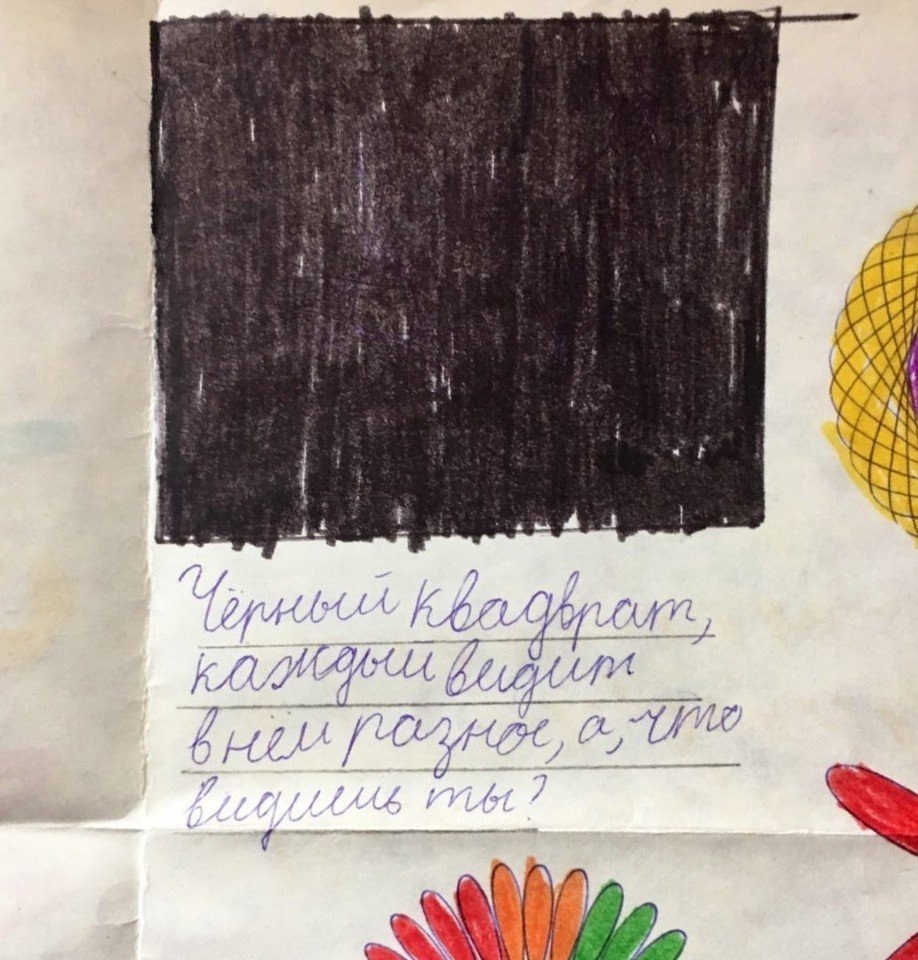 Чёрный квадврат,
каждый видит
в нём разное, а, что
видишь ты?